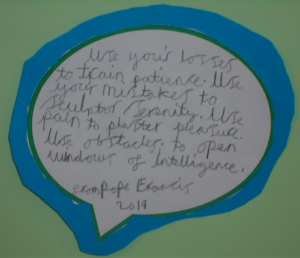 Use your's losses
to train patience. Use
your mistakes to
sculptor serenity. Use
pain to plaster pleasure.
Use obstacles to open
windows of Intelligence.
Pope Francis
2019